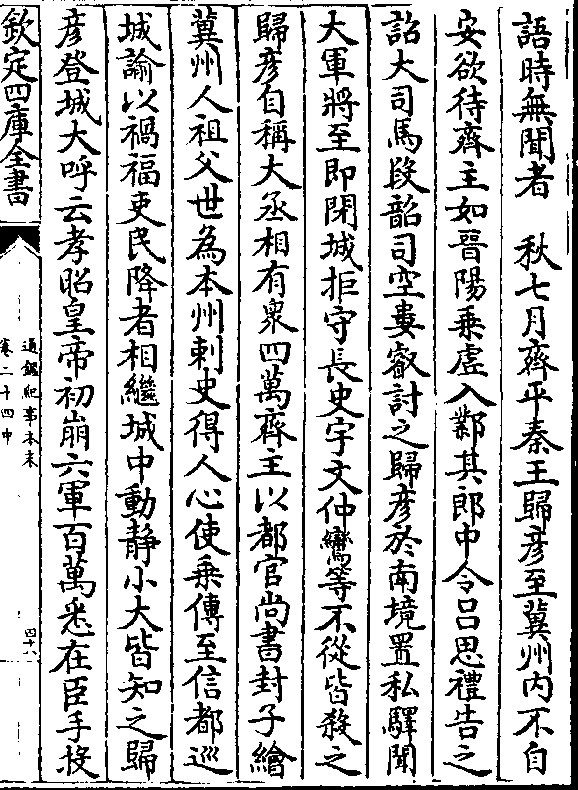 語時無聞者　秋七月齊平秦王歸彥至冀州内不自
安欲待齊主如晉陽乗虚入鄴其郎中令吕思禮告之
詔大司馬段韶司空婁叡討之歸彥於南境置私驛聞
大軍將至即閉城拒守長史宇文仲鸞等不從皆殺之
歸彥自稱大丞相有衆四萬齊主以都官尚書封子繪
冀州人祖父世為本州刺史得人心使乗傳至信都巡
城諭以禍福吏民降者相繼城中動静小大皆知之歸
彥登城大呼云孝昭皇帝初崩六軍百萬悉在臣手投
欽定四庫全書
通鑑紀事本末
卷二十四中
四十八